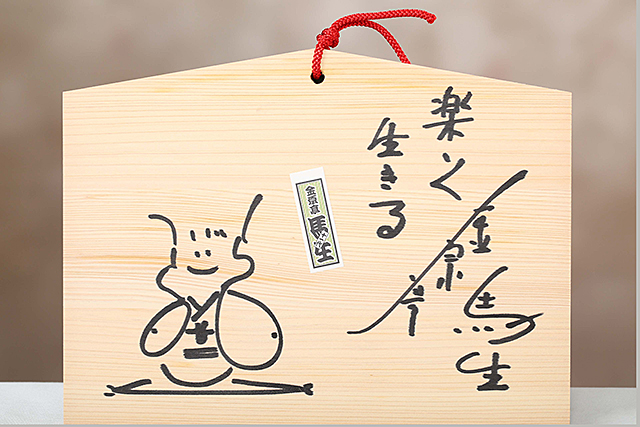 楽しく
生きる
金原亭
馬生
金原亭
馬生